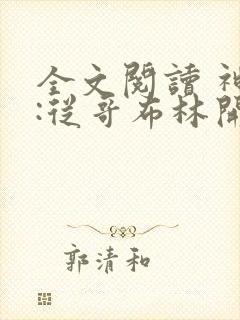 全文閱讀 神
:從哥布林開
郭清和